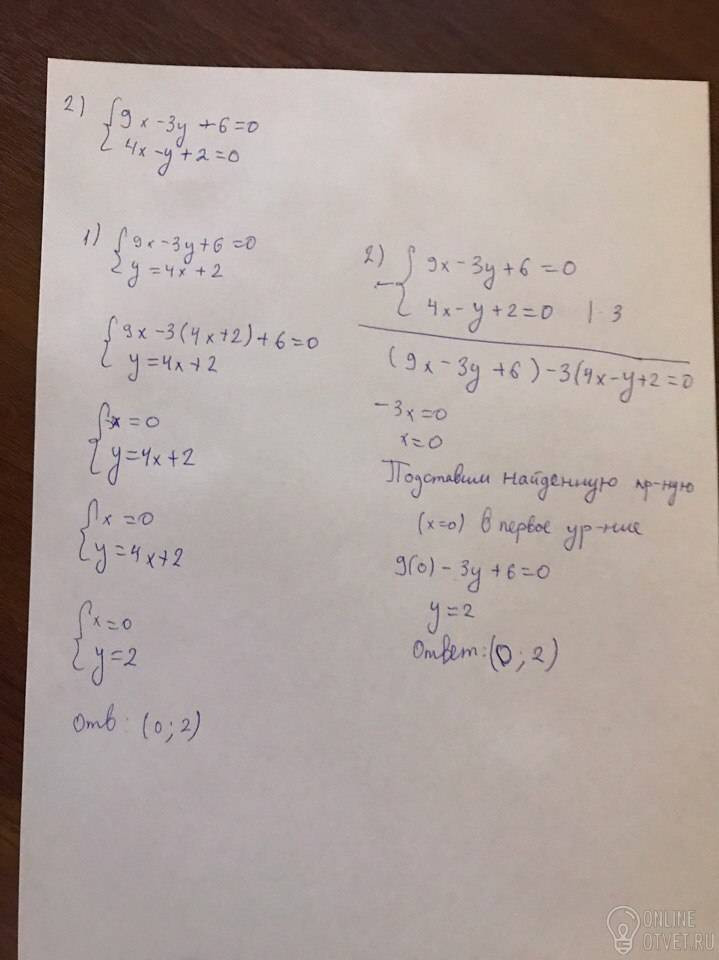 2) { 9x - 3y + 6 = 0
4x - y + 2 = 0
1) { 9x - 3y + 6 = 0
y = 4x + 2
{ 9x - 3(4x + 2) + 6 = 0
y = 4x + 2
x = 0
y = 4x + 2
{ x = 0
y = 4x + 2
{ x = 0
y = 2
Отв: (0; 2)
2) { 9x - 3y + 6 = 0
- 4x - y + 2 = 0 | · 3
(9x - 3y + 6) - 3(4x - y + 2 = 0
-3x = 0
x = 0
Подставим найденную пр-ную
(x = 0) в первое ур-ние
9(0) - 3y + 6 = 0
y = 2
Ответ: (0; 2)
ONLINE
OTVET.RU